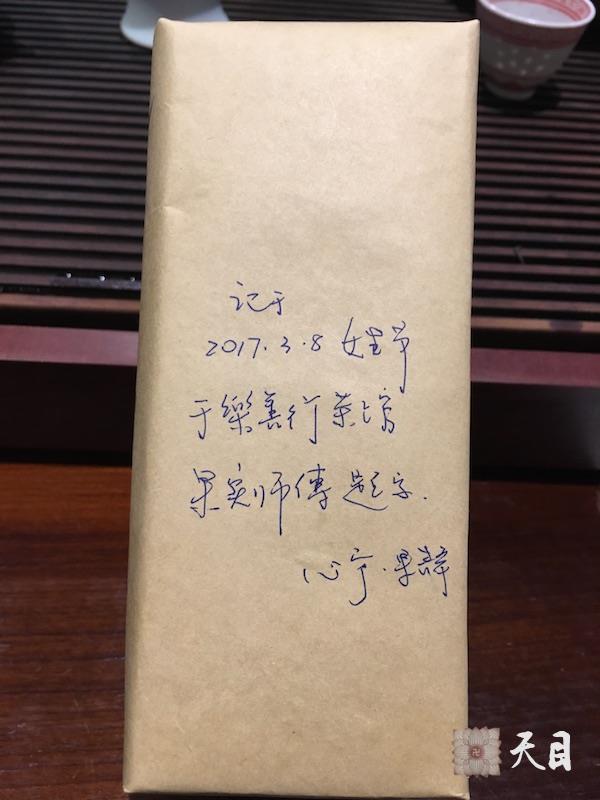 记于
2017.3.8 女生节
于樂善行茶坊
果实师傅题字.
心宁·果静
天目